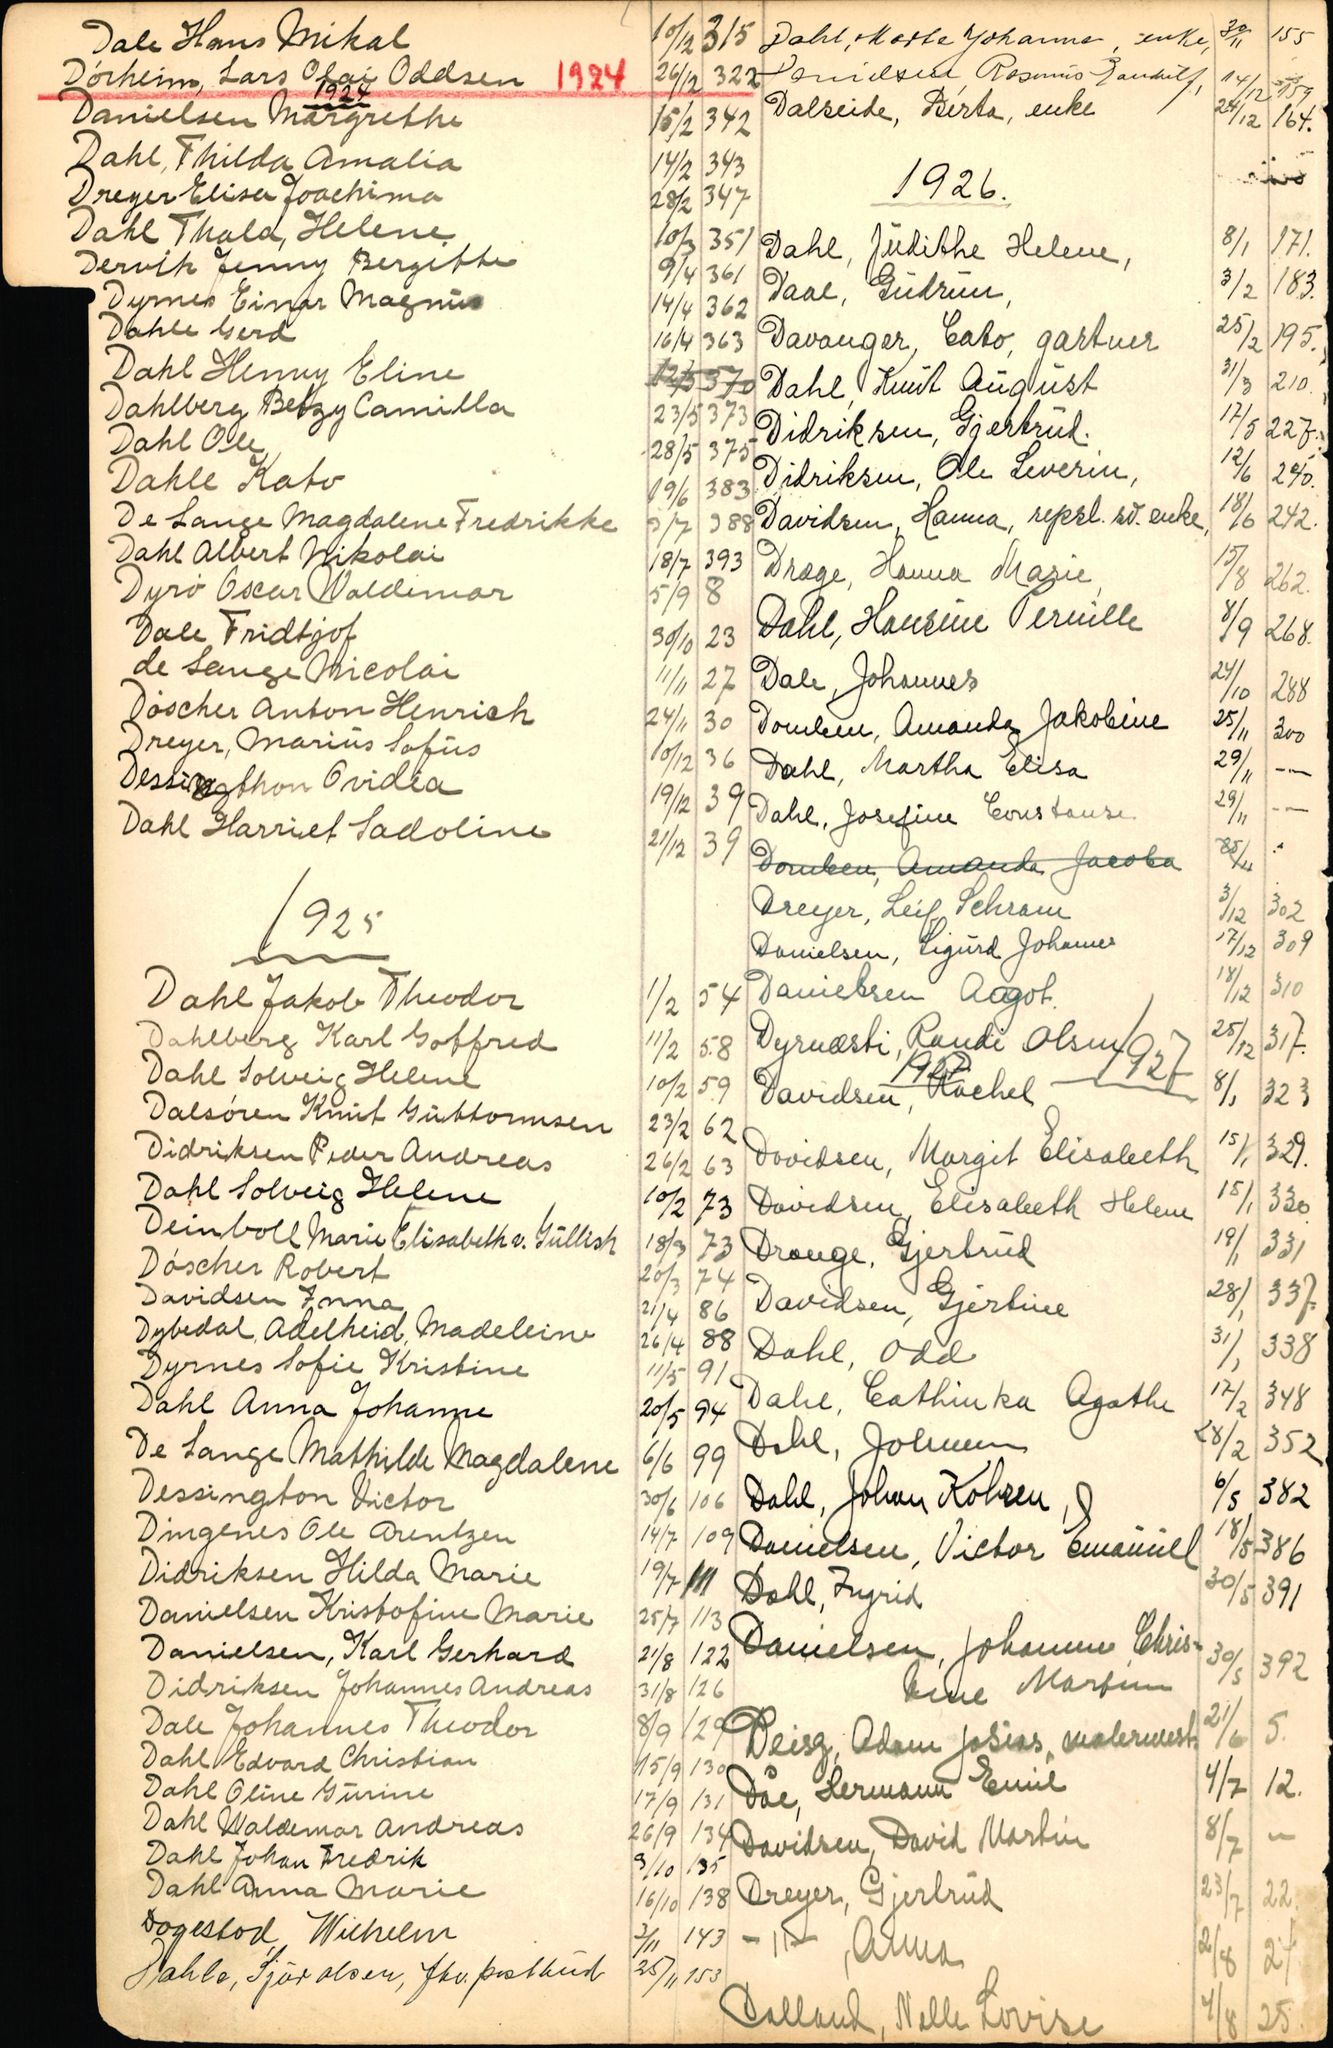 Dale Hans Mikal 10/12 315
Dörheim, Lars Olai Oddsen 1924 26/12 322
1924
Danielsen Margrethe 15/2 342
Dahl, Thilda Amalia 14/2 343
Dreyer Elisa Joachima 28/2 347
Dahl Thala, Helene 10/3 351
Dervik Jenny Bergitte 9/4 361
Dyrnes Einar Magnus 14/4 362
Dahle Gerd 16/4 363
Dahl Henny Eline 12/5 370
Dahlberg Betzy Camilla 23/5 373
Dahl Ole 28/5 375
Dahle Kato 19/6 383
De Lange Magdalene Fredrikke 3/7 388
Dahl Albert Nikolai 18/7 393
Dyrö Oscar Waldemar 5/9 8
Dale Fridtjof 30/10 23
de Lange Nicolai 11/11 27
Döscher Anton Henrich 24/11 30
Dreyer, Marius Sofus 10/12 36
Dessington Ovidia 19/12 39
Dahl Harriet Sadoline 21/12 39
1925
Dahl Jakob Theodor 1/2 54
Dahlberg Karl Gotfred 11/2 58
Dahl Solveig Helene 10/2 59
Dalsören Knut Guttormsen 23/2 62
Didriksen Peder Andreas 26/2 63
Dahl Solveig Helene 10/2 73
Deinboll Marie Elisabeth v. Güllich 18/3 73
Döscher Robert 20/3 74
Davidsen Anna 21/4 86
Dybedal, Adelheid, Madeleine 26/4 88
Dyrnes Sofie Kristine 11/5 91
Dahl Anna Johanne 20/5 94
De Lange Mathilde Magdalene 6/6 99
Dessington Victor 30/6 106
Dingenes Ole Arentzen 14/7 109
Didriksen Hilda Marie 19/7 111
Danielsen Kristofine Marie 25/7 113
Danielsen, Karl Gerhard 21/8 122
Didriksen Johannes Andreas 31/8 126
Dale Johannes Theodor 8/9 129
Dahl Edvard Christian 15/9 130
Dahl Oline Gurine 17/9 131
Dahl Waldemar Andreas 26/9 134
Dahl Johan Fredrik 3/10 135
Dahl Anna Marie 16/10 138
Dagestad, Wilhelm 2/11 143
Dahle, Sjur Olsen, fhv. postbud 25/11 153
Dahl, Marta Johanne, enke, 30/11 155
Danielsen Rasmus 14/12 159
Dalseide, Berta, enke 24/12 164.
1926.
Dahl, Judithe Helene, 8/1 171.
Daae, Gudrun, 3/2 183.
Davanger, Cato, gartner 25/2 195.
Dahl, Knut August 31/3 210.
Didriksen, Gjertrud. 17/5 227.
Didriksen, Ole Severin, 12/6 240.
Davidsen, Hanna, repsl. sv. enke, 18/6 242.
Drage, Hanna Marie, 15/8 262.
Dahl, Hansine Pernille 8/9 268.
Dale, Johannes 24/10 288
Domben, Amanda Jakobine 25/11 300
Dahl, Martha Elisa 29/11 —
Dahl, Josefine Constanse 29/11 —
Domben, Amanda Jacoba 25/11
Dreyer, Leif Schram 3/12 302
Danielsen, Sigurd Johannes 17/12 309
Danielsen Aagot. 18/12 310
Dyrnæsli, Randi Olsen 25/12 317.
1927 1927
Davidsen, Rachel 8/1 323
Davidsen, Margit Elisabeth 15/1 329.
Davidsen, Elisabeth Helene 15/1 330.
Drange, Gjertrud 19/1 331
Davidsen, Gjertine 28/1 337.
Dahl, Odd 31/1 338
Dahl, Cathinka Agathe 17/2 348
Dahl, Johannes 28/2 352
Dahl, Johan Kohren, J 6/5 382
Danielsen, Victor Emanuel 18/5 386
Dahl, Ingrid 30/5 391
Danielsen, Johanne Chris-
tine Martine 30/5 392
Deisz, Adam Josias, malermest. 21/6 5.
Dåe, Hermann Emil 4/7 12.
Davidsen, David Martin 8/7 —
Dreyer, Gjertrud 23/7 22.
—"— , Anna 2/8 24
Dalland, Nelle Lovise 4/8 25.